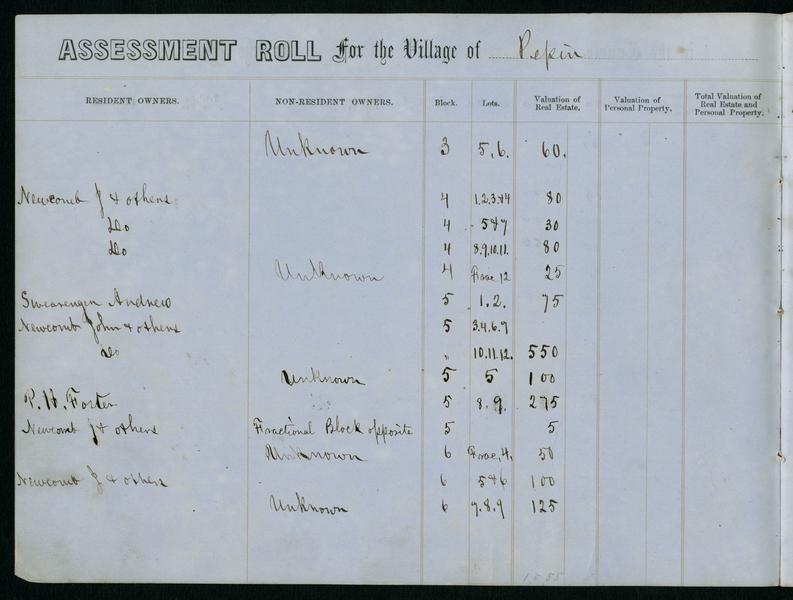 ASSESSMENT ROLL For the Village of Pepin
RESIDENT OWNERS. NON-RESIDENT OWNERS. Block. Lots. Valuation of Real Estate. Valuation of Personal Property. Total Valuation of Real Estate and Personal Property.
Unknown 3 5,6. 60.
Newcomb J & others 4 1.2.3.&4 80
Do 4 5&7 30
Do 4 8.9.10.11. 80
Unknown 4 Frac 12 25
Swearengen Andrew 5 1.2. 75
Newcomb John & others 5 3.4.6.7
Do " 10.11.12. 550
Unknown 5 5 100
P. H. Foster 5 8.9. 275
Newcomb J & others Fractional Block opposite 5 5
Unknown 6 Frac, 4, 50
Newcomb J & others 6 5&6 100
Unknown 6 7.8.9 125